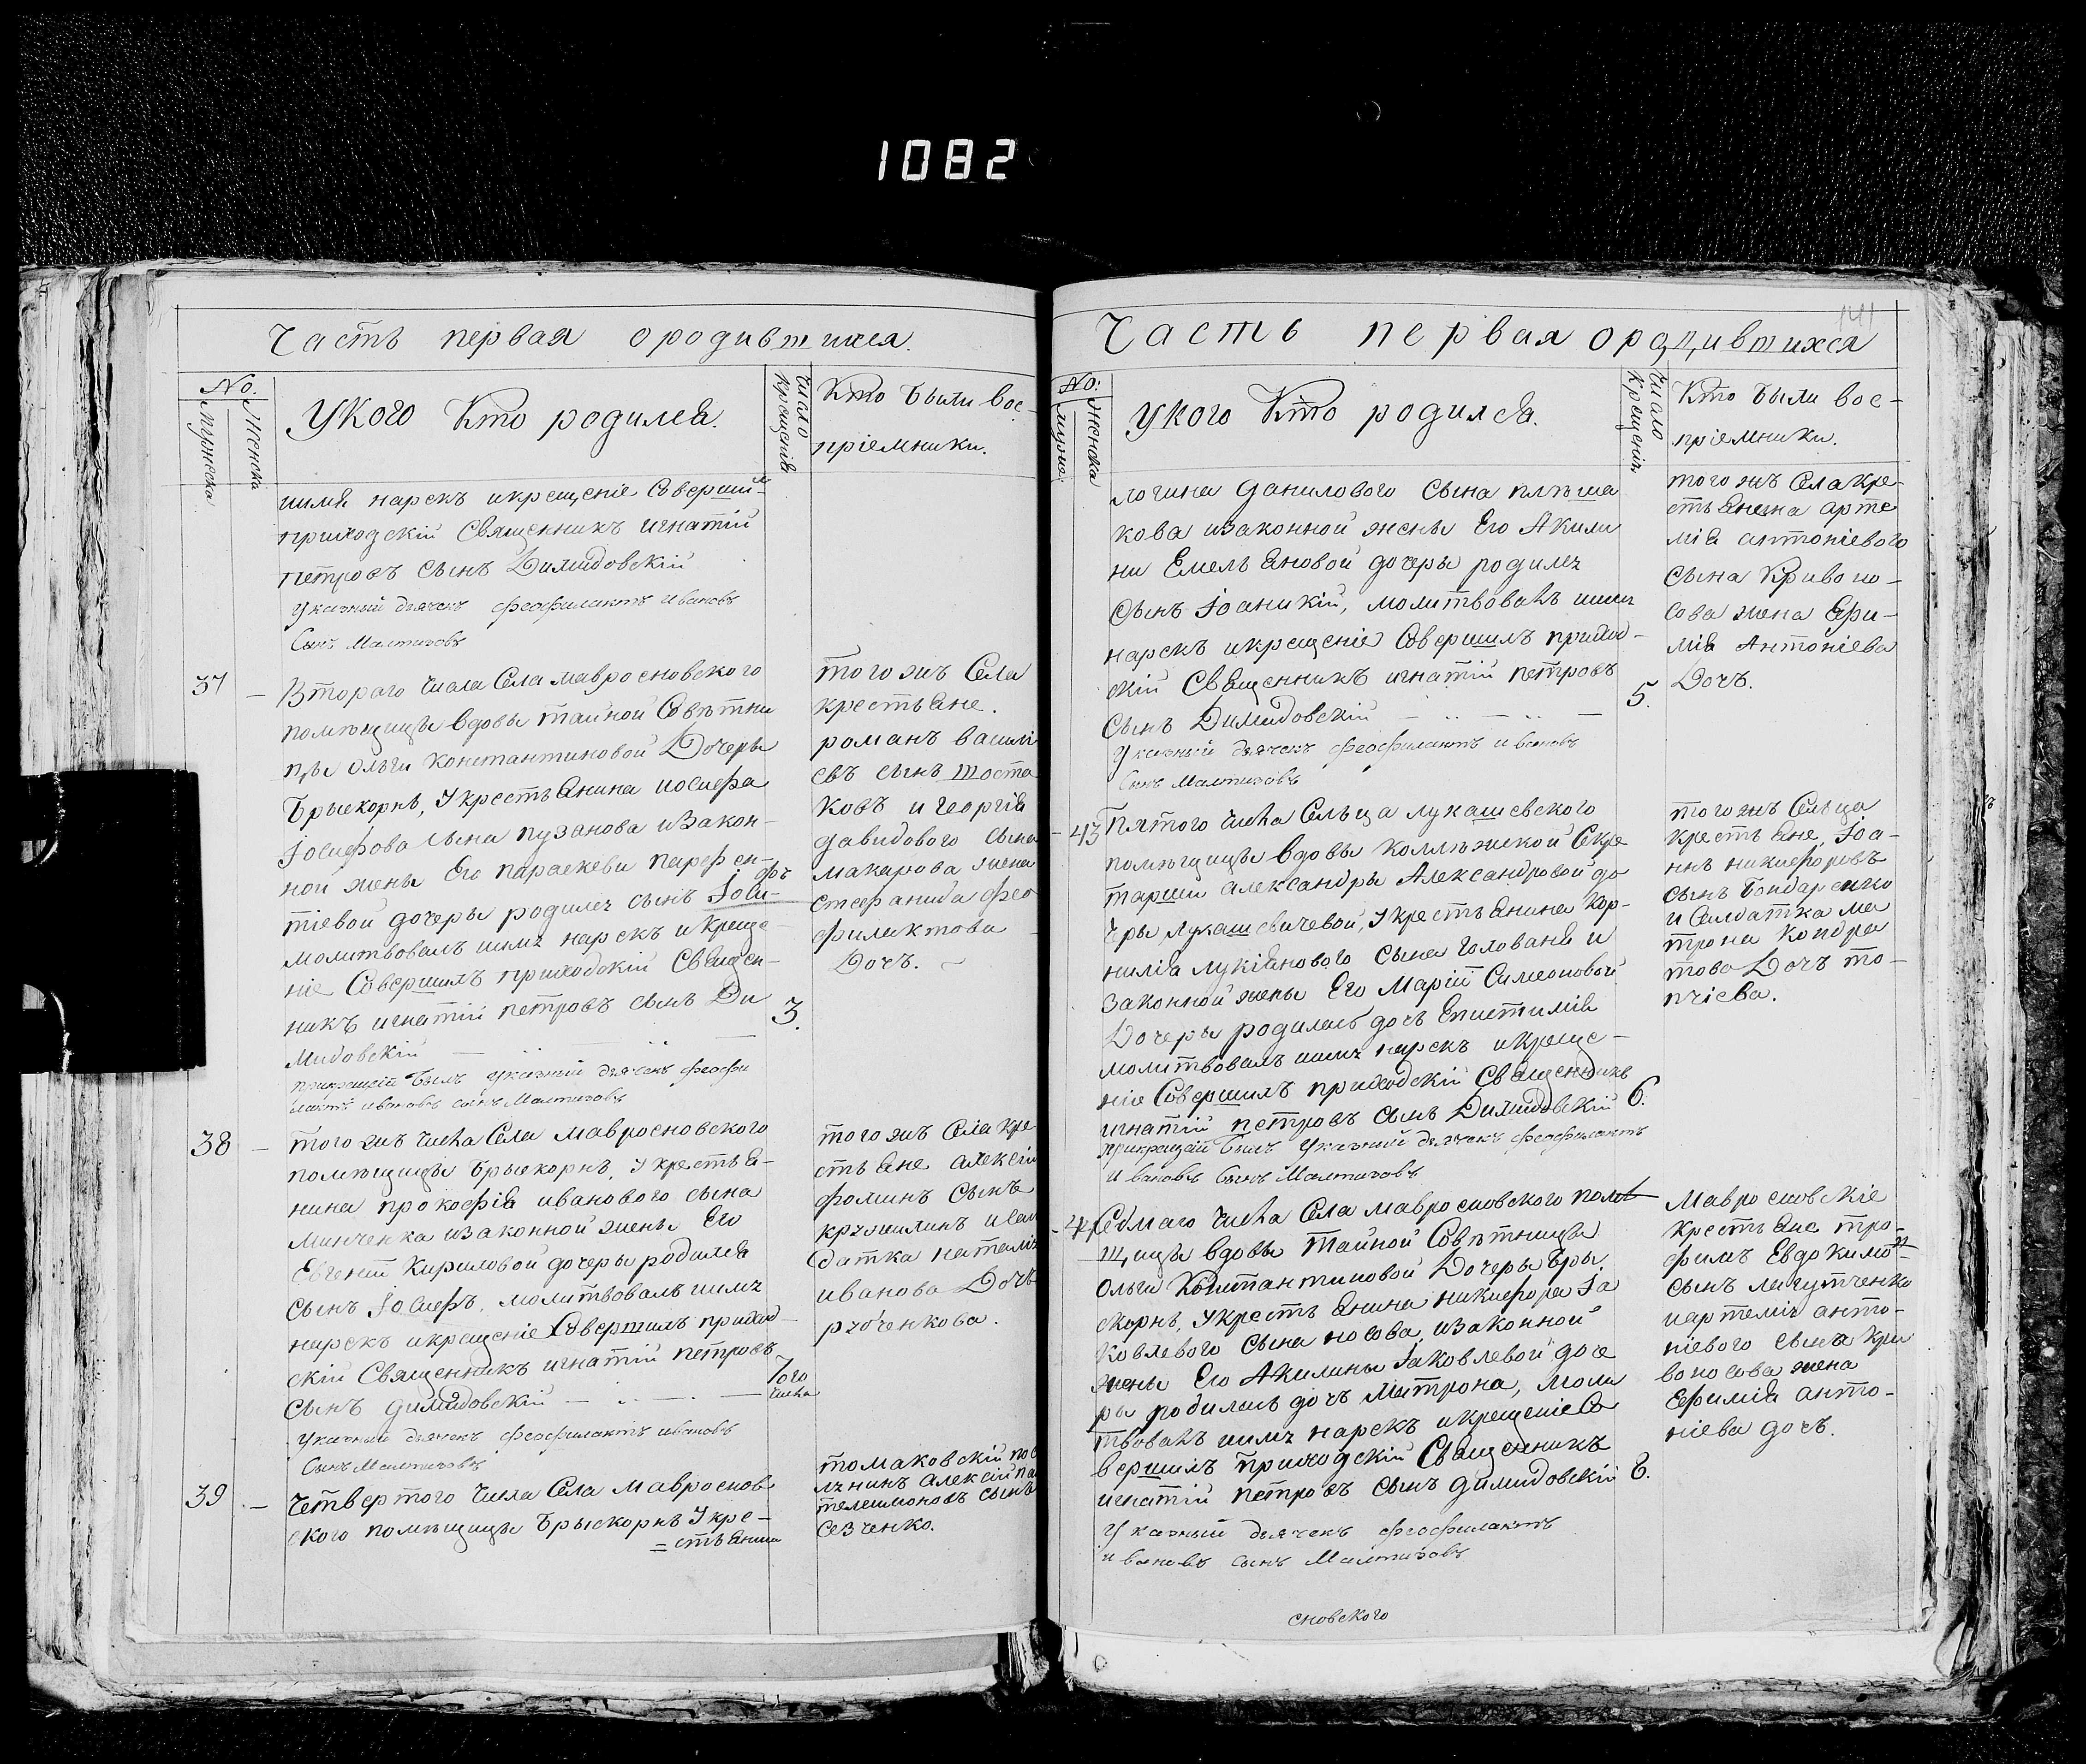 1082
Часть первая ородившихся.
No.
Мужеска
Женска
Укого Кто родился.
Число крещенія
Кто были вос-
пріемники.
имя нарекъ икрещеніе Соверши
приходскій Священникъ игнатій
Петровъ сынъ Димидовскій
Указный дьячекъ феофилактъ Ивановъ
Сынъ
37 — Втораго числа Села мавросновского
помѣщицы вдовы тайной Совѣтни
цы ольги константиновой Дочеры
Брыскорнъ, Укрестьянина иосифа
Іосифова сына пузанова изакон-
ной жены Его параскеви парфен-
тіевой дочеры родился сынъ Іоси-
фъ
молитвовалъ имя нарекъ икреще
ніе Совершилъ приходскій Священ-
никъ игнатій петровъ сынъ Ди
мидовскій
3.
прикрещеніи былъ указный дьячекъ феофи
лактъ ивановъ сынъ
того жъ Села
крестьяне.
романъ василі
евъ сынъ шоста
ковъ и георгія
давидового сына
макарова жена
стефанида фео
филактова
Дочъ.
38 — того жъ числа Села мавросновского
помѣщицы Брыскорнъ, Укрестья-
нина прокофія иванового сына
минченка изаконной жены Его
Евгеніи Кириловой дочеры родился
сынъ Іосифъ, молитвовалъ имя
нарекъ икрещеніе Совершилъ приход-
скій Священникъ игнатій петровъ
сынъ димидовскій
Того
числа
Указный дьячекъ феофилактъ ивановъ
Сынъ
того жъ Села кре
стьяне алексій
фоминъ сынъ
исал
датка наталія
иванова Дочъ
39 — Четвертого числа Села мавроснов
ского помѣщицы Брыскорнъ Укре-
= стьянина
томаковскій
алексій
сынъ
141
Часть первая ородившихся
No:
мужес
женска
Укого Кто родился.
Число крещенія
Кто были вос-
пріемники.
логина данилового сына плѣша
кова изаконной жены Его Акили
ни Емельяновой дочеры родился
сынъ Іоаникій, молитвовалъ имя
нарекъ икрещеніе Совершилъ приход-
скій Священникъ игнатій петровъ
сынъ Димидовскій
5.
Указный дьячекъ феофилактъ ивановъ
Сынъ
того жъ Села кре-
стьянина арте
мія антоніевого
сына Кривоно-
сова жена Ефи-
мія Антоніева
Дочъ.
43 Пятого числа Сельца лукашевского
помѣщицы вдовы коллѣжской Секре
тарши александры Александровой до
черы Лукашевичевой, Укрестьянина Кор-
нилія лукіянового сына голованя и
законной жены Его Маріи Симеоновой
Дочеры родилась дочъ Епистимія
молитвовалъ имя нарекъ икреще-
ніе Совершилъ приходскій Священникъ
игнатій петровъ сынъ Димидовскій 6.
прикрещеніи былъ Указный дьячекъ феофилактъ
Ивановъ Сынъ
того жъ Сельца
крестьяне, Іоа-
ннъ никифоровъ
сынъ Бондаренко
и Салдатка ма
трона кондра
това Дочъ
44 Седмаго числа Села мавросновского помѣ
щицы вдовы тайной Совѣтницы
ольги Константиновой Дочеры Бры-
скорнъ, Укрестьянина никифора Іа
ковлевого сына носова, изаконной
жены Его Акилины Іаковлевой доче
ры родилась дочъ Матрона, моли
твовалъ имя нарекъ икрещеніе Со
вершилъ приходскій Священникъ
игнатій петровъ сынъ димидовскій 8.
Указный дьячекъ феофилактъ
ивановъ сынъ
Мавросновскіе
крестьяне тро-
фимъ Евдокимо
сынъ
иартемія анто-
ніевого сына кри
воносова жена
Ефимія анто-
ніева дочъ.
сновского